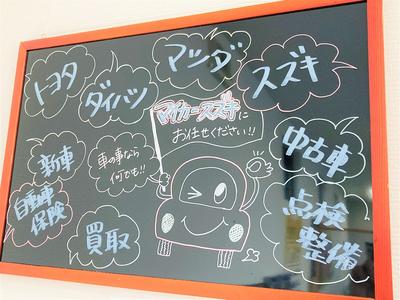 トヨタ
ダイハツ
マツダ
スズキ
マイカースズキに
お任せください!!
車の事なら
何でも!!
新車
自動車
保険
買取
中古車
点検
整備